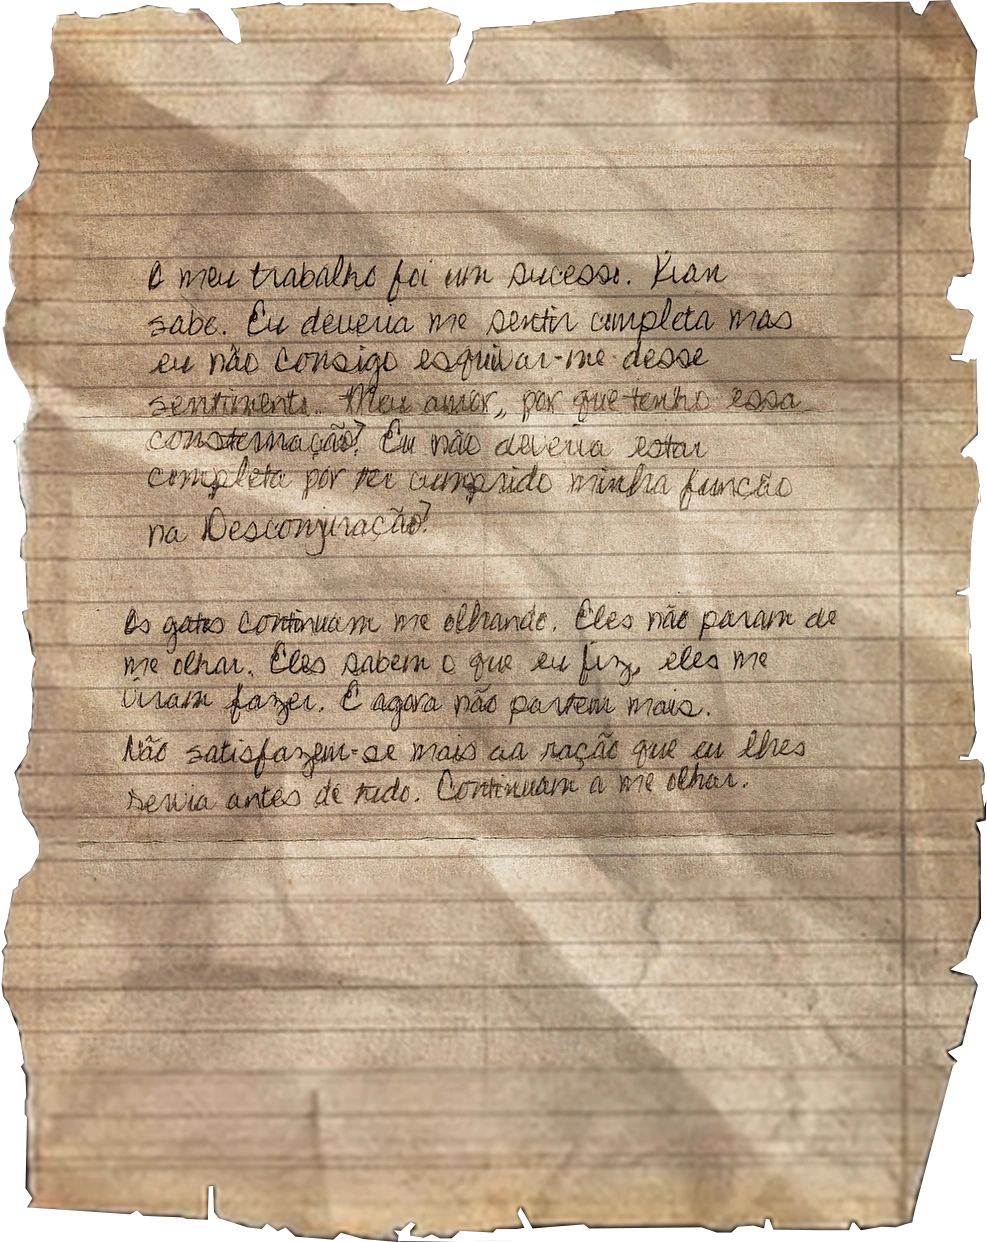 O meu trabalho foi um sucesso. Kian
sabe. Eu deveria me sentir completa mas
eu não consigo esquivar-me desse
sentimento. Meu amor, por que tenho essa
consternação? Eu não deveria estar
completa por ter cumprido minha função
na Desconjuração?
Os gatos continuam me olhando. Eles não param de
me olhar. Eles sabem o que eu fiz, eles me
viram fazer. E agora não partem mais.
Não satisfazem-se mais da ração que eu lhes
servia antes de tudo. Continuam a me olhar.